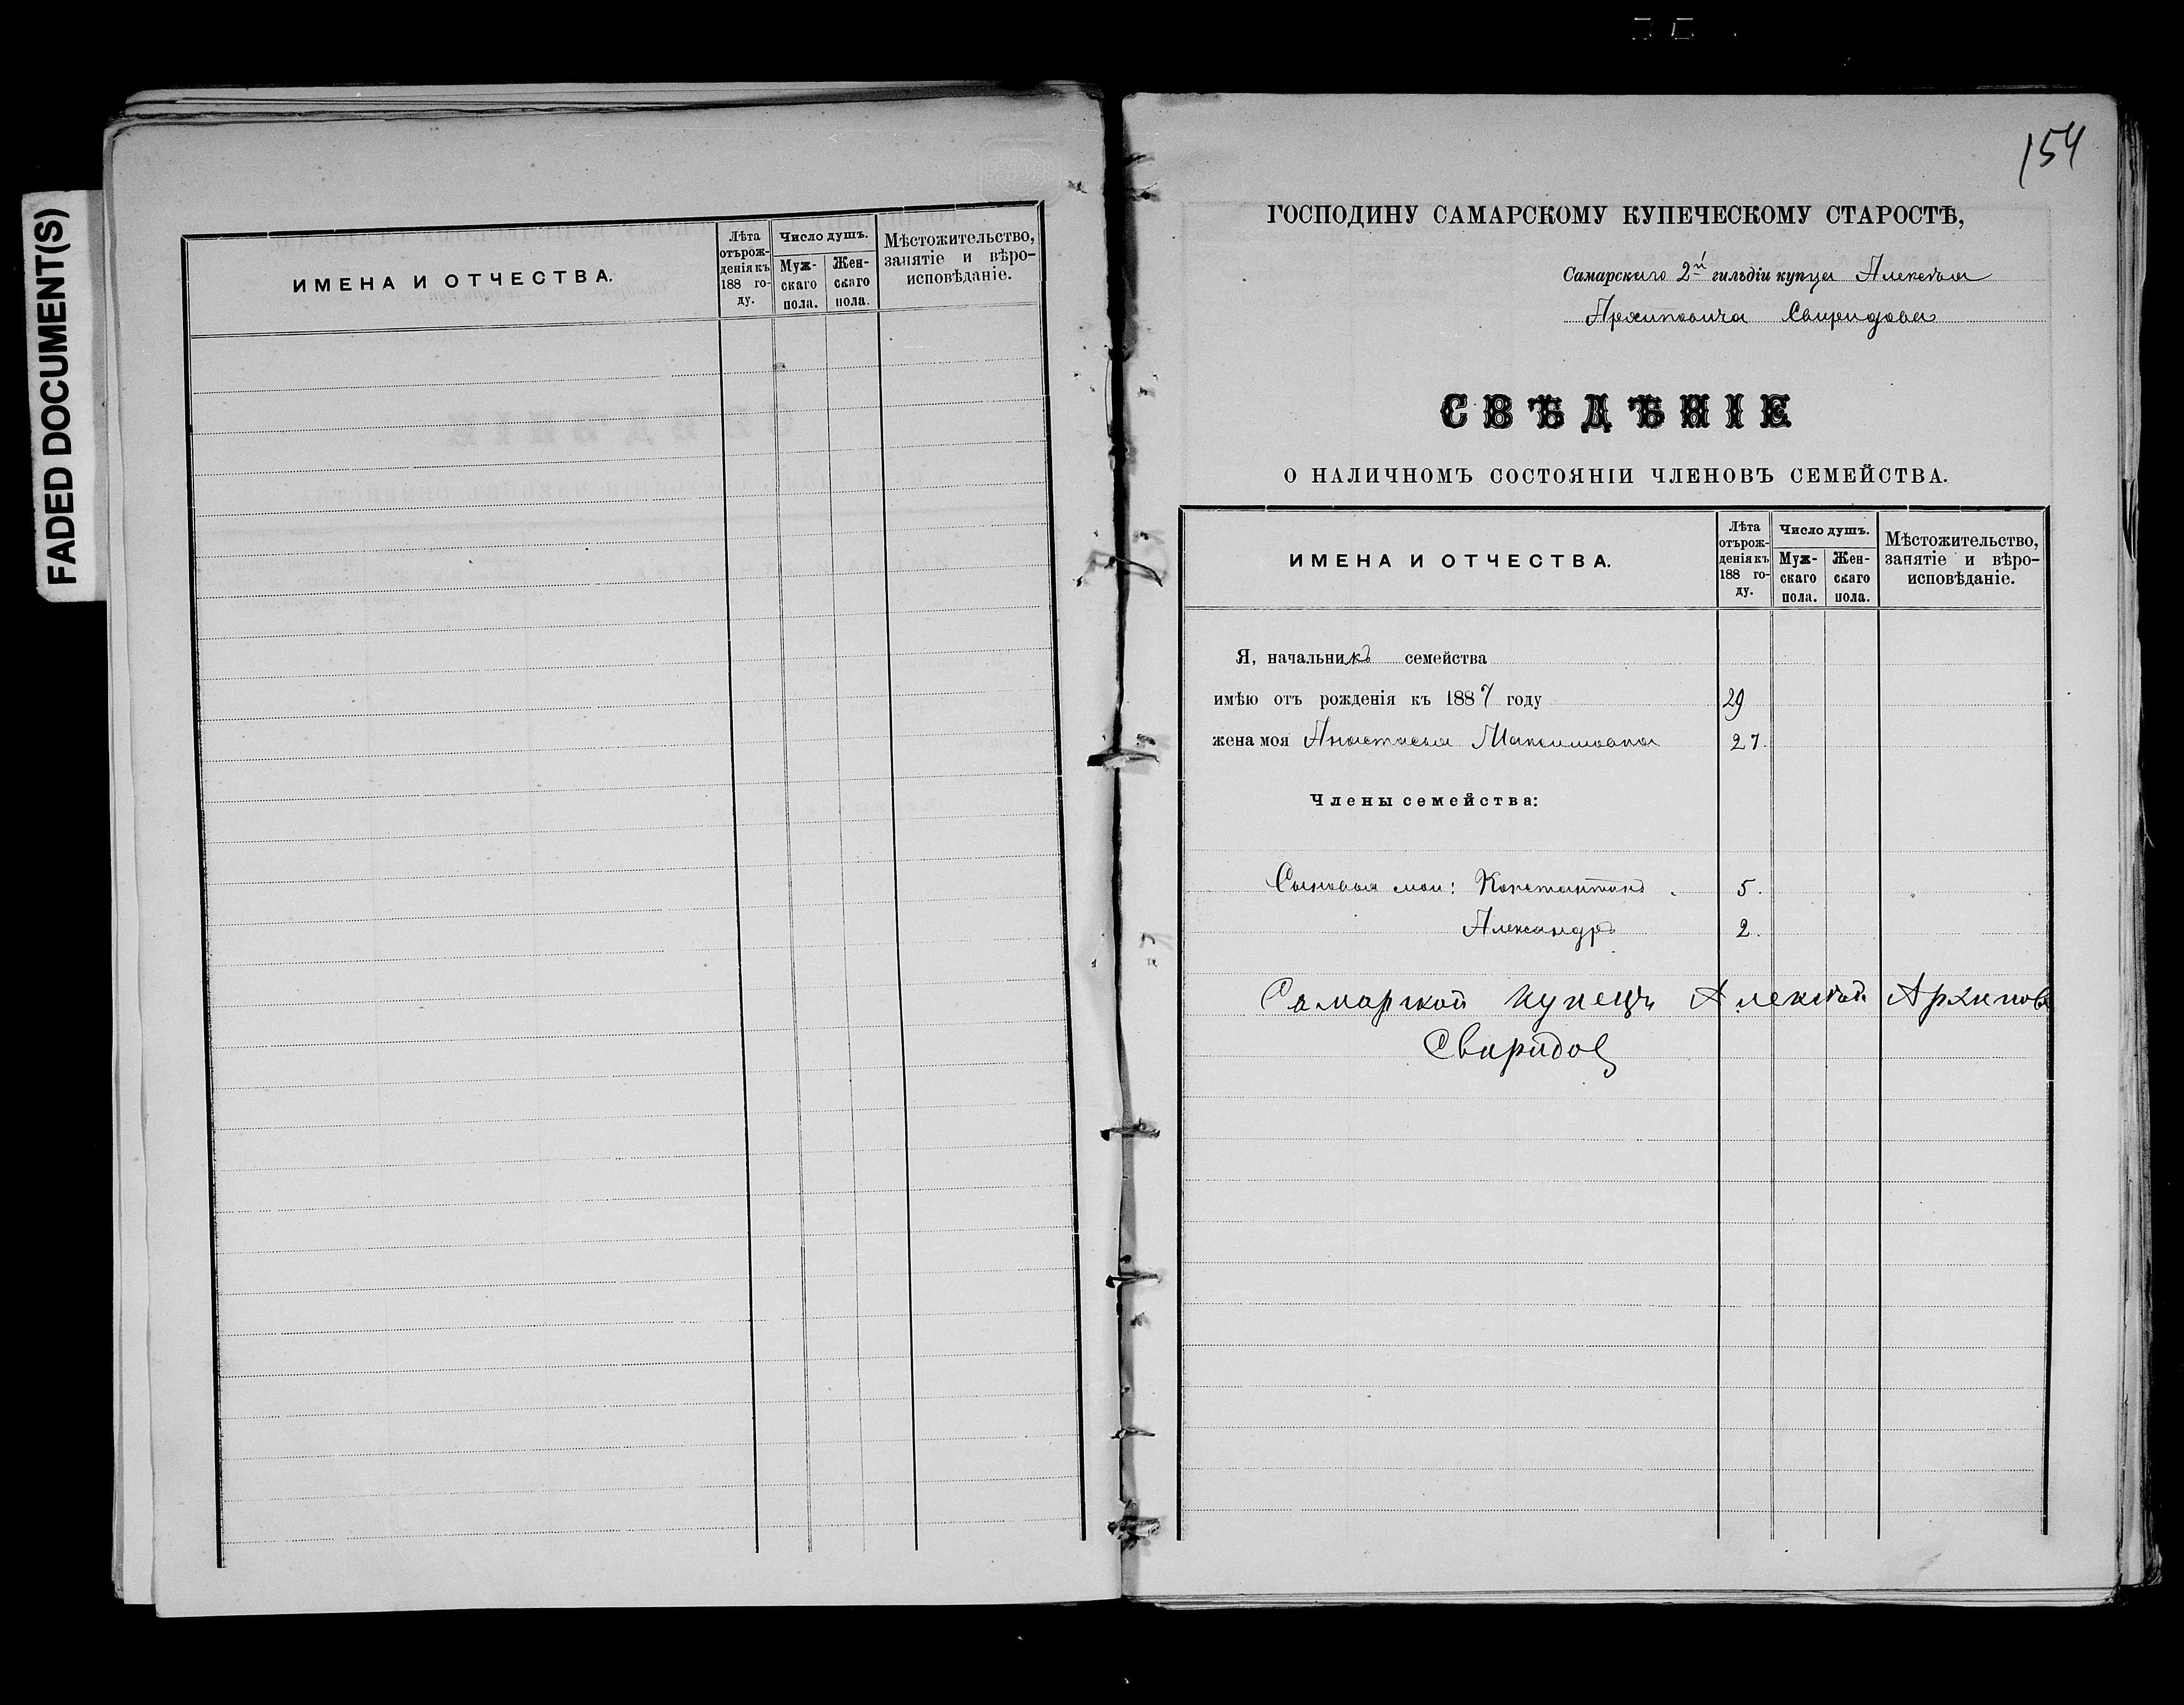 FADED DOCUMENT(S)
ИМЕНА И ОТЧЕСТВА.
Лѣта
отърож-
денія къ
188 го-
ду.
Число душъ.
Муж-
скаго
пола.
Жен-
скаго
пола.
Мѣстожительство,
занятіе и вѣро-
исповѣданіе.
154
ГОСПОДИНУ САМАРСКОМУ КУПЕЧЕСКОМУ СТАРОСТѢ,
Самарскаго 2й гильдіи купца Алексѣя
Архиповича Свиридова
СВѢДѢНІЕ
О НАЛИЧНОМЪ СОСТОЯНІИ ЧЛЕНОВЪ СЕМЕЙСТВА.
ИМЕНА И ОТЧЕСТВА.
Лѣта
отърож-
денія къ
188 го-
ду.
Число душъ.
Муж-
скаго
пола.
Жен-
скаго
пола.
Мѣстожительство,
занятіе и вѣро-
исповѣданіе.
Я, начальникъ семейства
имѣю отъ рожденія къ 1887 году 29
жена моя Анастасья Максимовна 27.
Члены семейства:
Сыновья мои: Константинъ 5.
Александръ 2.
Самарской купецъ Алексѣй Архиповъ
Свиридов